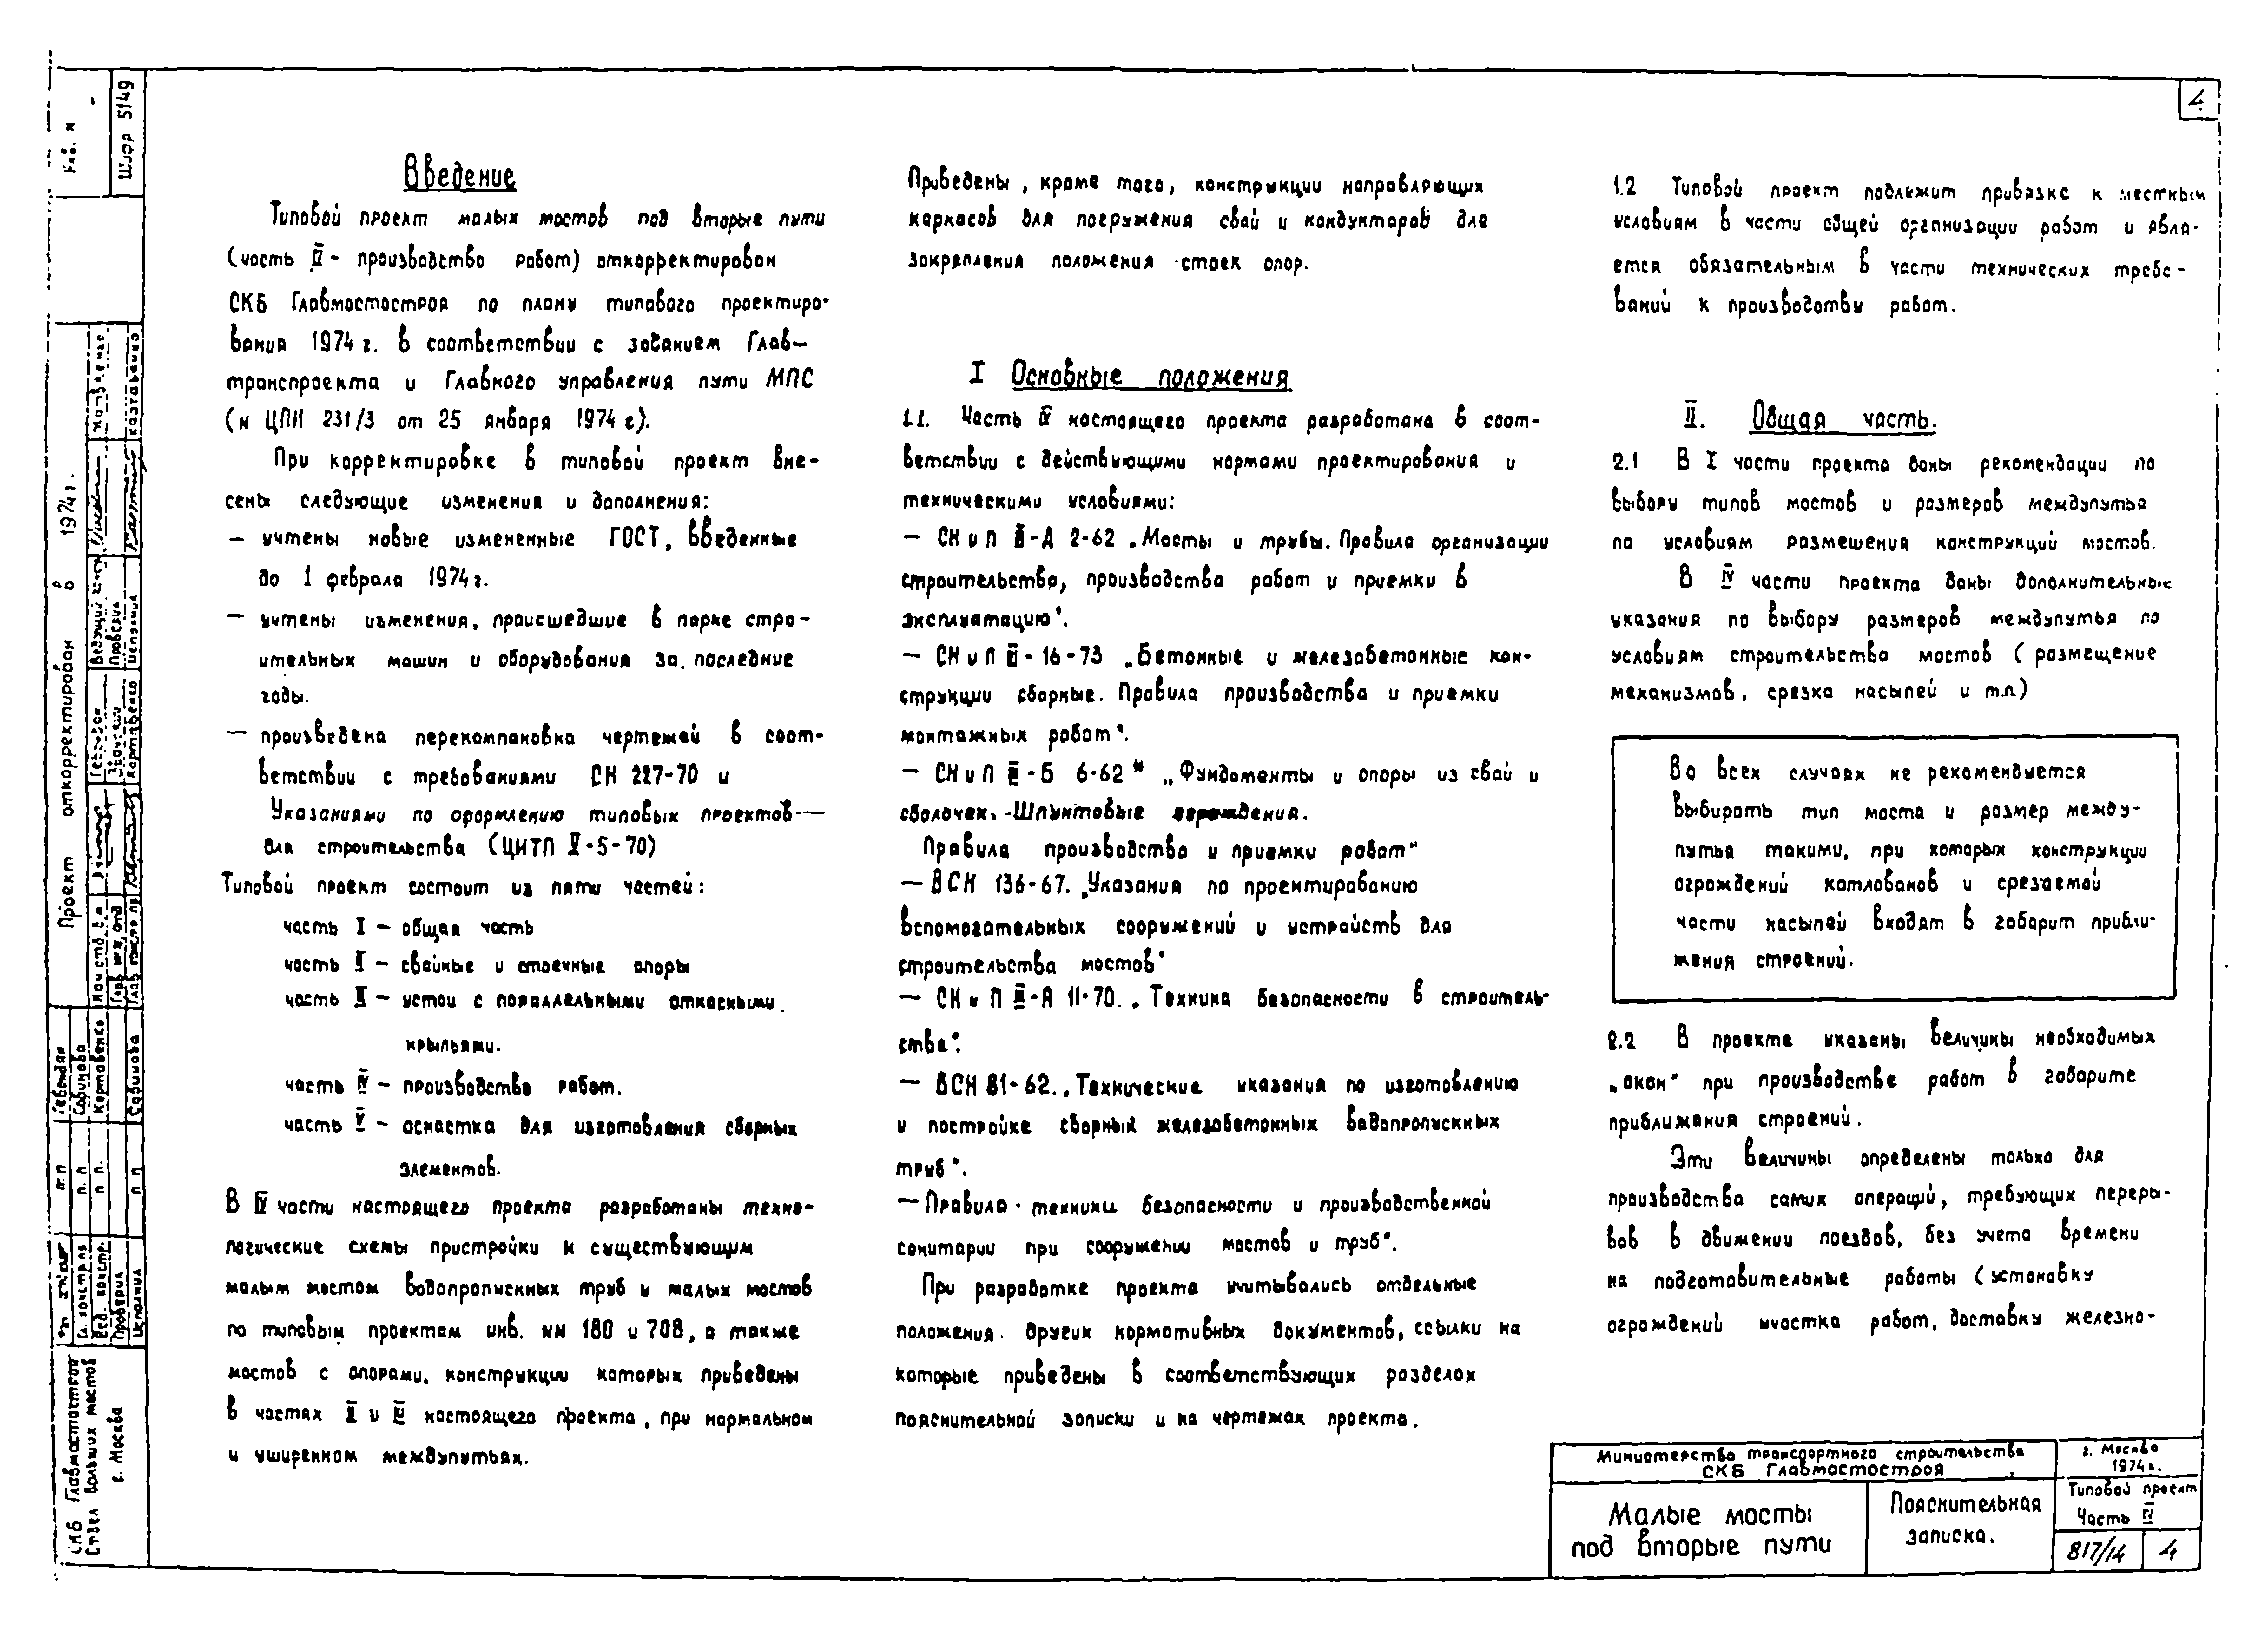 4
Введение
Типовой проект малых мостов под вторые пути
(часть IV - производство работ) откорректирован
СКБ Главмостостроя по плану типового проектиро-
вания 1974 г. в соответствии с заданием Глав-
транспроекта и Главного управления пути МПС
(н ЦПИ 231/3 от 25 января 1974 г).
При корректировке в типовой проект вне-
сены следующие изменения и дополнения:
— учтены новые измененные ГОСТ, введенные
до 1 февраля 1974г.
— учтены изменения, происшедшие в парке стро-
ительных машин и оборудования за последние
годы.
— произведена перекомпановка чертежей в соот-
ветствии с требованиями СН 227-70 и
Указаниями по оформлению типовых проектов
для строительства (ЦИТП V-5-70)
Типовой проект состоит из пяти частей:
часть I - общая часть
часть II - свайные и стоечные опоры
часть III - устои с параллельными откосными
крыльями.
часть IV - производство работ.
часть V - оснастка для изготовления сборных
элементов.
В IV части настоящего проекта разработаны техно-
логические схемы пристройки к существующим
малым мостам водопропускных труб и малых мостов
по типовым проектам инв. нн 180 и 708, а также
мостов с опорами, конструкции которых приведены
в частях II и III настоящего проекта, при нормальном
и уширенном междупутьях.
Приведены, кроме того, конструкции направляющих
каркасов для погружения свай и кондукторов для
закрепления положения стоек опор.
I Основные положения
1.1. Часть IV настоящего проекта разработана в соот-
ветствии с действующими нормами проектирования и
техническими условиями:
— СН и П III-Д 2-62 „Мосты и трубы. Правила организации
строительства, производства работ и приемки в
эксплуатацию".
— СН и П III-16-73 „Бетонные и железобетонные кон-
струкции сборные. Правила производства и приемки
монтажных работ".
— СН и П III-Б 6-62* „Фундаменты и опоры из свай и
оболочек. Шпунтовые ограждения.
Правила производства и приемки работ"
— ВСН 136-67. „Указания по проектированию
вспомогательных сооружений и устройств для
строительства мостов"
— СН и П III-А 11-70. „Техника безопасности в строитель-
стве".
— ВСН 81-62. „Технические указания по изготовлению
и постройке сборных железобетонных водопропускных
труб".
— Правила техники безопасности и производственной
санитарии при сооружении мостов и труб".
При разработке проекта учитывались отдельные
положения других нормативных документов, ссылки на
которые приведены в соответствующих разделах
пояснительной записки и на чертежах проекта.
1.2 Типовой проект подлежит привязке к местным
условиям в части общей организации работ и явля-
ется обязательным в части технических требо-
ваний к производству работ.
II. Общая часть.
2.1 В I части проекта даны рекомендации по
выбору типов мостов и размеров междупутья
по условиям размещения конструкций мостов.
В IV части проекта даны дополнительные
указания по выбору размеров междупутья по
условиям строительства мостов (размещение
механизмов, срезка насыпей и т.п.)
Во всех случаях не рекомендуется
выбирать тип моста и размер между-
путья такими, при которых конструкции
ограждений котлованов и срезаемой
части насыпей входят в габарит прибли-
жения строений.
2.2 В проекте указаны величины необходимых
„окон" при производстве работ в габарите
приближения строений.
Эти величины определены только для
производства самих операций, требующих переры-
вов в движении поездов, без учета времени
на подготовительные работы (установку
ограждений участка работ, доставку железно-
Министерство транспортного строительства
СКБ Главмостостроя
г. Москва
1974г.
Малые мосты
под вторые пути
Пояснительная
записка.
Типовой проект
Часть IV
817/14
4
Шифр 5149
Проект откорректирован в 1974г.
СКБ Главмостостроя
Отдел больших мостов
г. Москва
Гл. констр. пр
Вед. констр.
Проверил
Исполнил
п. п
п. п.
п п
Гевондян
Картавенко
Сабинова
Нач отд Б.М
Глав констр пр
Гевондян
Картавенко
Проверил
Исполнил